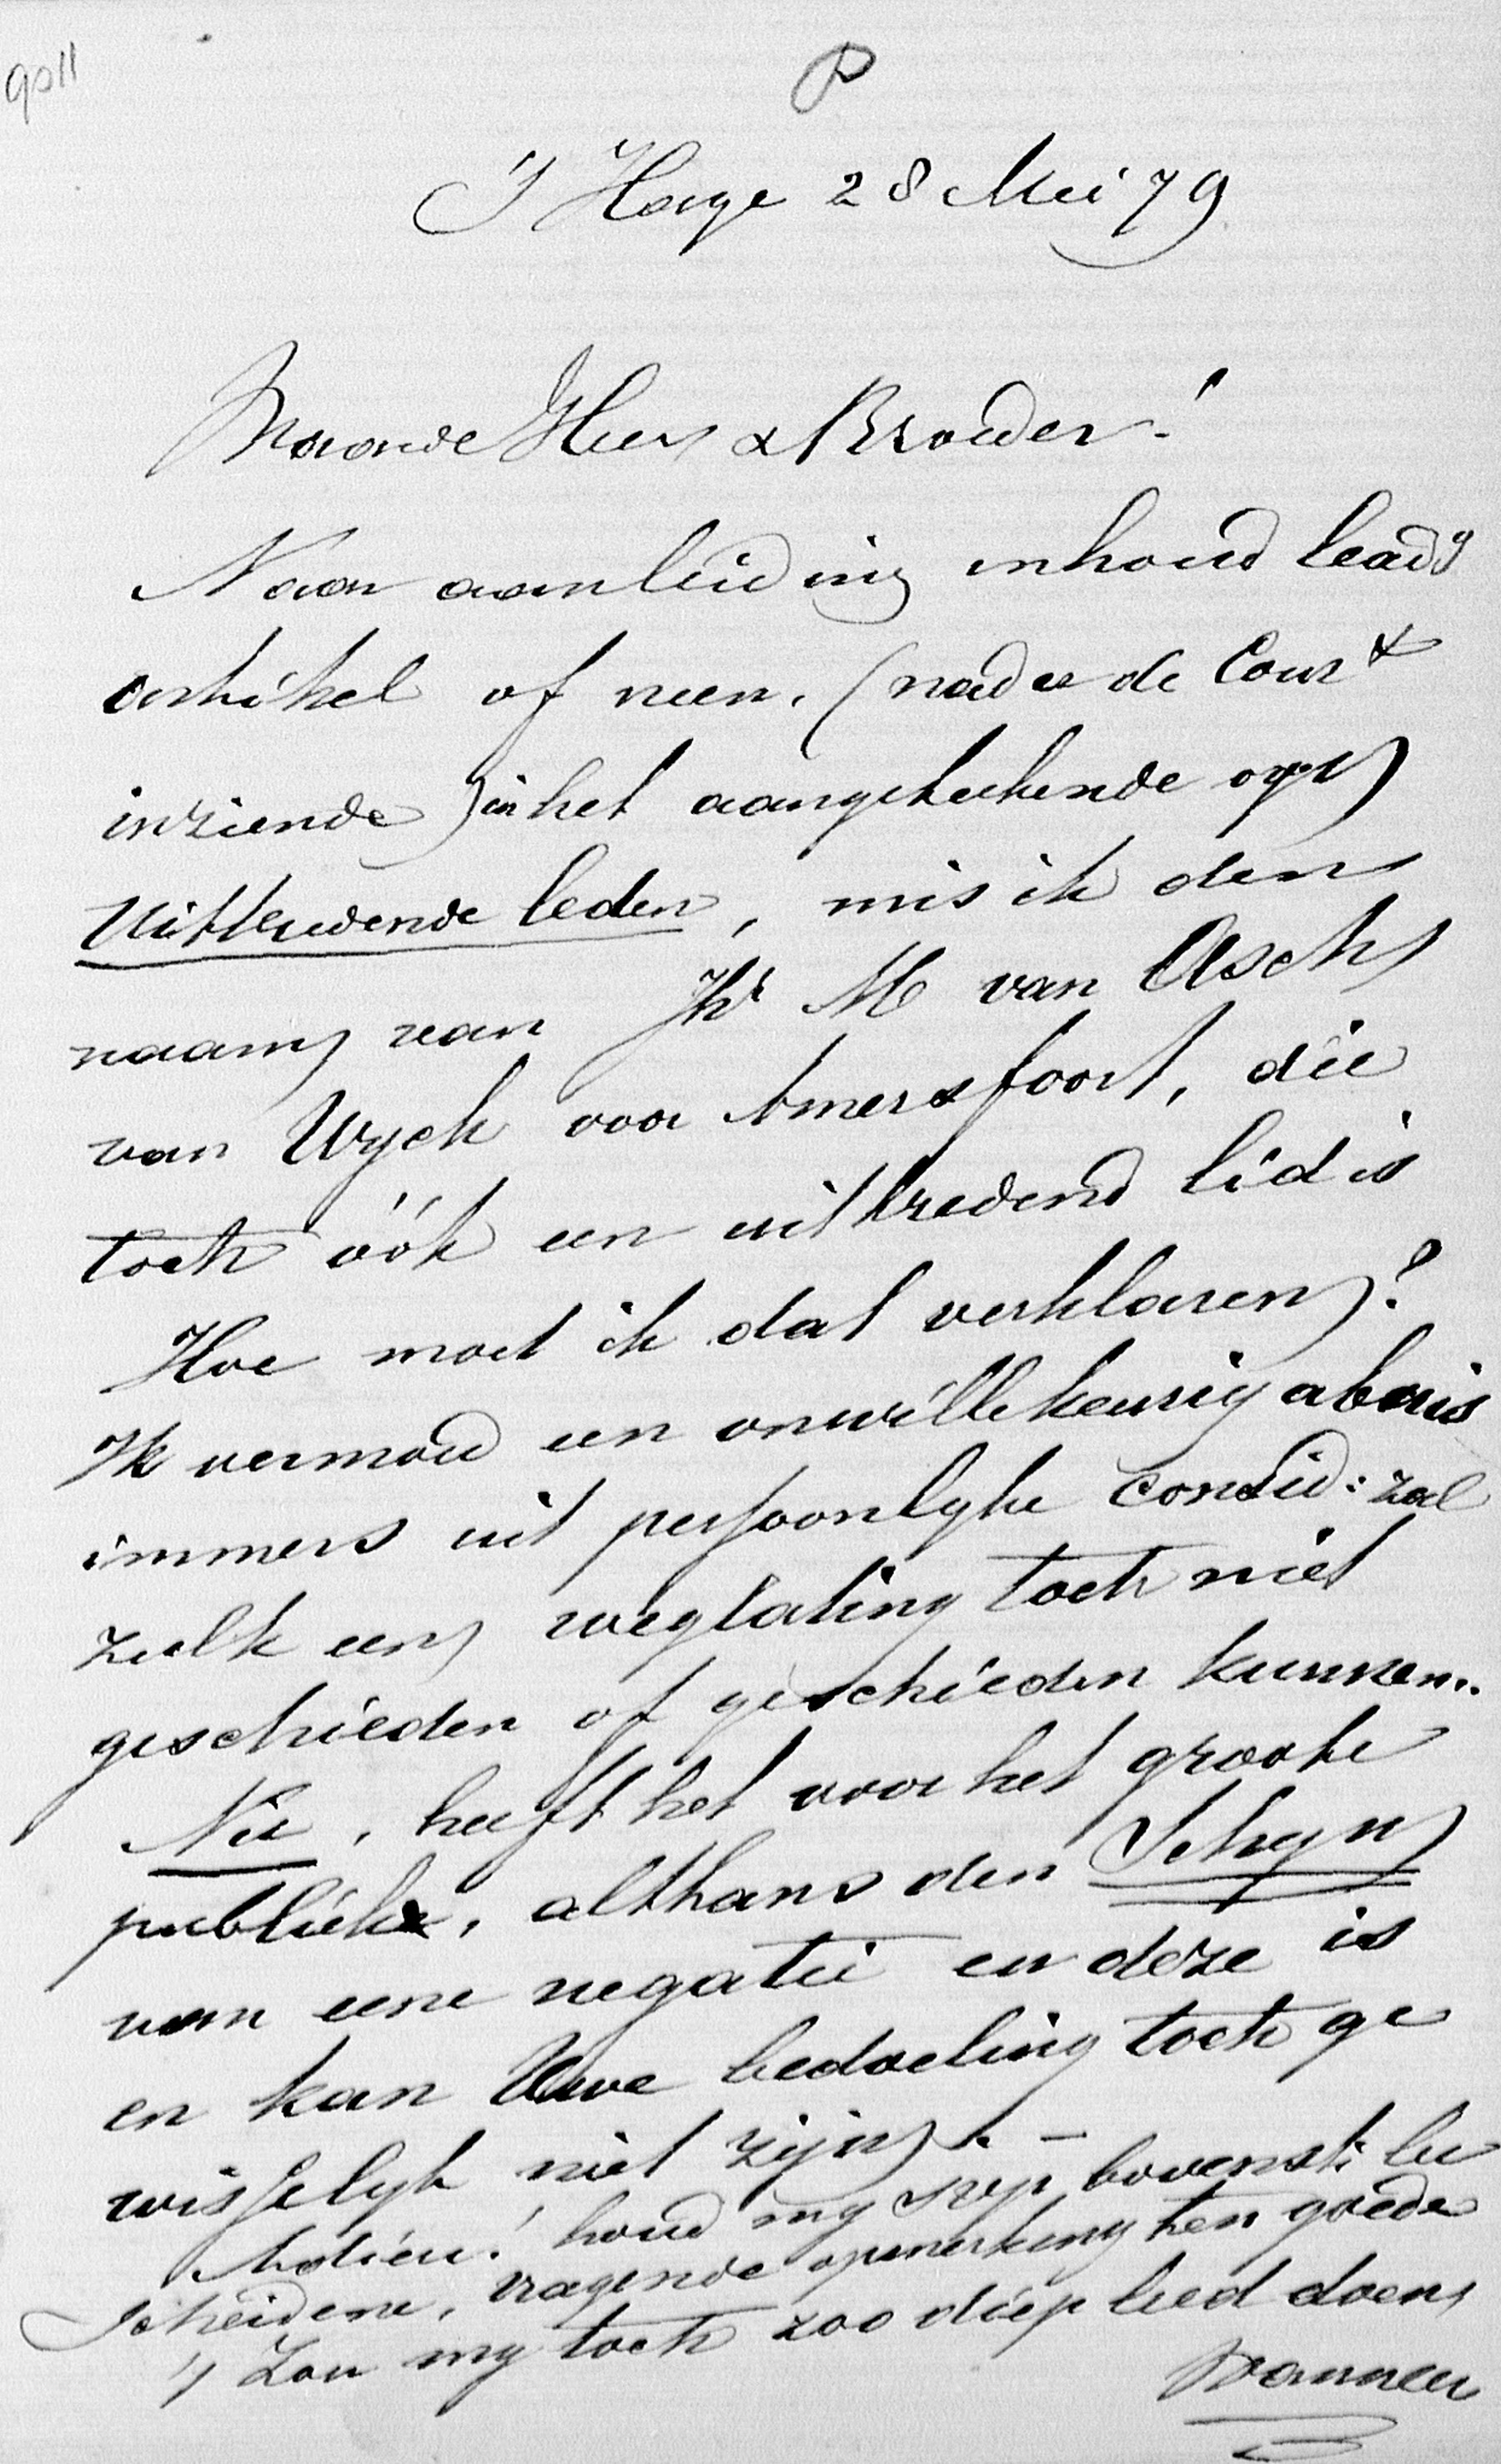 9011
P
'S Hage 28 Mei 79
Waarde Heer & Broeder!
Naar aanleiding inhoud leadg
artikel of neen. (nader de Court
inziende) in het aangeteekende op
Uittredende leden, mis ik den
naam van Jhr M van Asch
van Wyck voor Amersfoort, die
toch óók een uittredend lid is
Hoe moet ik dat verklaren?
Ik vermoed een onwillekeurig abuis
immers uit persoonlyke consid: zal
zulk een weglating toch niet
geschieden of geschieden kunnen..
Nu, heeft het voor het groote
publiek, althans den Schyn
van eene negatie en deze is
en kan Uwe bedoeling toch ge
wisselyk niet zijn. –
Adieu! houd my bovenst: be
scheidene, vragende opmerking ten goede
't Zou my toch zoo diep leed doen